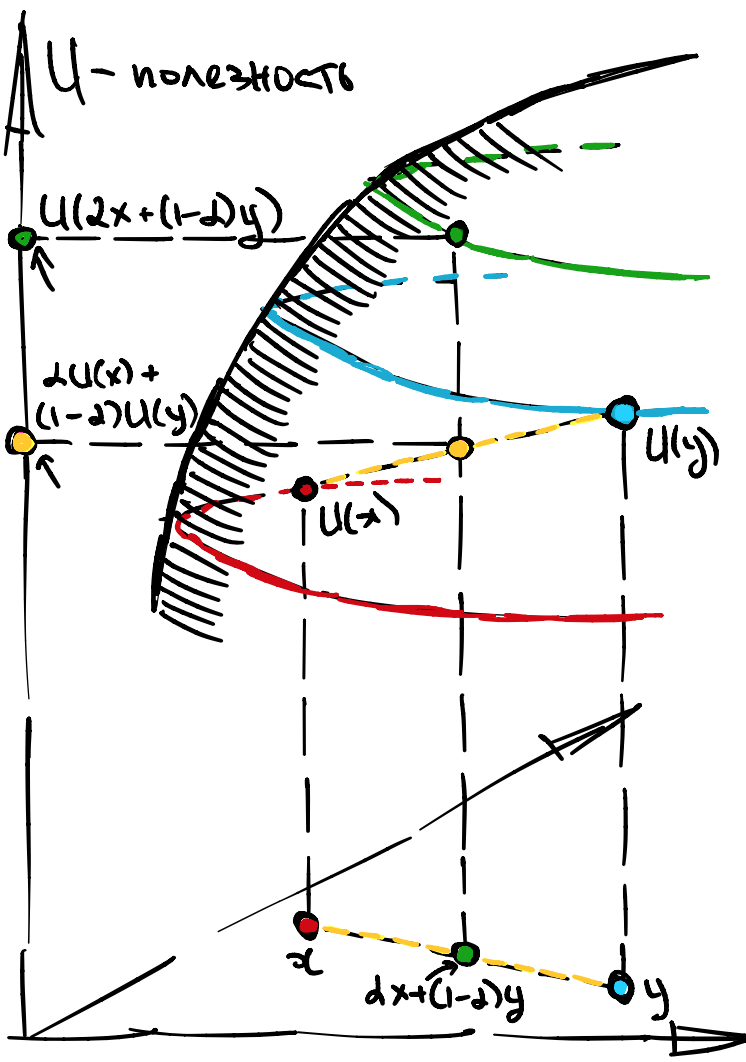 U - полезность
U(αx+(1-α)y)
αU(x) +
(1-α)U(y)
U(y)
U(x)
x
αx+(1-α)y
y